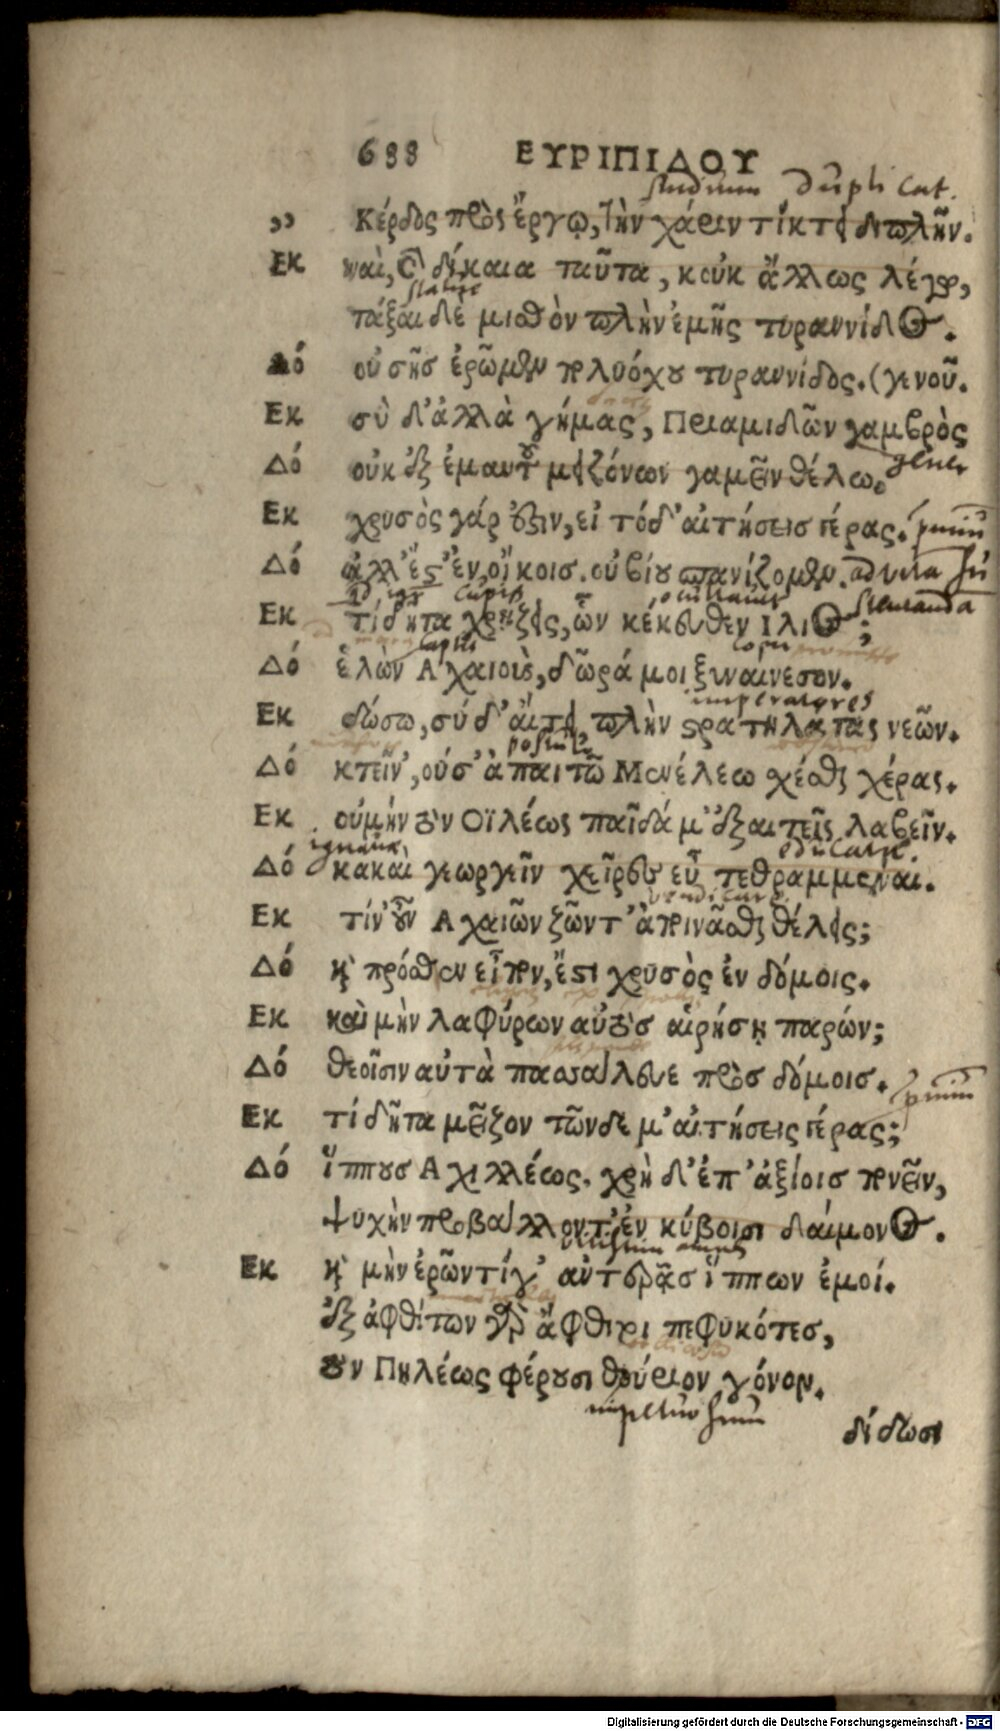 688 ΕΥΡΙΠΙΔΟΥ
studium duplicat.
„ Κέρδος πρὸς ἔργῳ, τὴν χάριν τίκτει διπλῆν.
Εκ ναὶ, καὶ δίκαια ταῦτα, κοὐκ ἄλλως λέγω,
statue
τάξαι δὲ μισθὸν πλὴν ἐμῆς τυραννίδος.
Δό οὐ σῆσ ἐρῶμεν πολυόχου τυραννίδος. (γενοῦ.
Εκ σὺ δ' ἀλλὰ γήμας, Πριαμιδῶν γαμβρὸς
gener
Δό οὐκ ἐξ ἐμαυτοῦ μειζόνων γαμεῖν θέλω.
Εκ χρυσὸς γάρ ἔστιν, εἰ τόδ' αἰτήσεισ γέρας.
Δό ἀλλ' ἔστ' ἐν οἴκοισ. οὐ βίου σπανίζομεν.
ad vitam
cupis
Εκ τί δῆτα χρήζεις, ὧν κέκευθεν Ιλιος;
Δό ἑλὼν Αχαιοὺς, δῶρά μοι ξυναίνεσον.
imperatores
Εκ δώσω, σύ δ' αἴτει, πλὴν στρατηλατὰς νεῶν.
Δό κτεῖν', οὐσ' ἀπαιτῶ Μενέλεω χέσθαι χέρας.
Εκ οὐ μὴν τὸν Οϊλέως παῖδά μ' ἐξαιτεῖς λαβεῖν.
educatae.
Δό κακαὶ γεωργεῖν χεῖρες εὖ τεθραμμέναι.
Εκ τίν' οὖν Αχαιῶν ζῶντ' ἀποινᾶσθαι θέλεις;
Δό καὶ πρόσθεν εἶπον, ἔστι χρυσὸς ἐν δόμοις.
Εκ καὶ μὴν λαφύρων αὐτὸσ αἱρήσῃ παρών;
Δό θεοῖσιν αὐτὰ πασσάλευε πρὸσ δόμοισ.
Εκ τί δῆτα μεῖζον τῶνδε μ' αἰτήσεις γέρας;
Δό ἵππουσ Αχιλλέως. χρὴ δ' ἐπ' ἀξίοισ πονεῖν,
ψυχὴν προβάλλοντ' ἐν κύβοισι δαίμονος.
Εκ καὶ μὴν ἐρῶντί γ' αὐτερᾷσ ἵππων ἐμοί.
ἐξ ἀφθίτων γὰρ ἄφθιτοι πεφυκότεσ,
τὸν Πηλέως φέρουσι θούριον γόνον.
impetuosum
δίδωσι
Digitalisierung gefördert durch die Deutsche Forschungsgemeinschaft - DFG